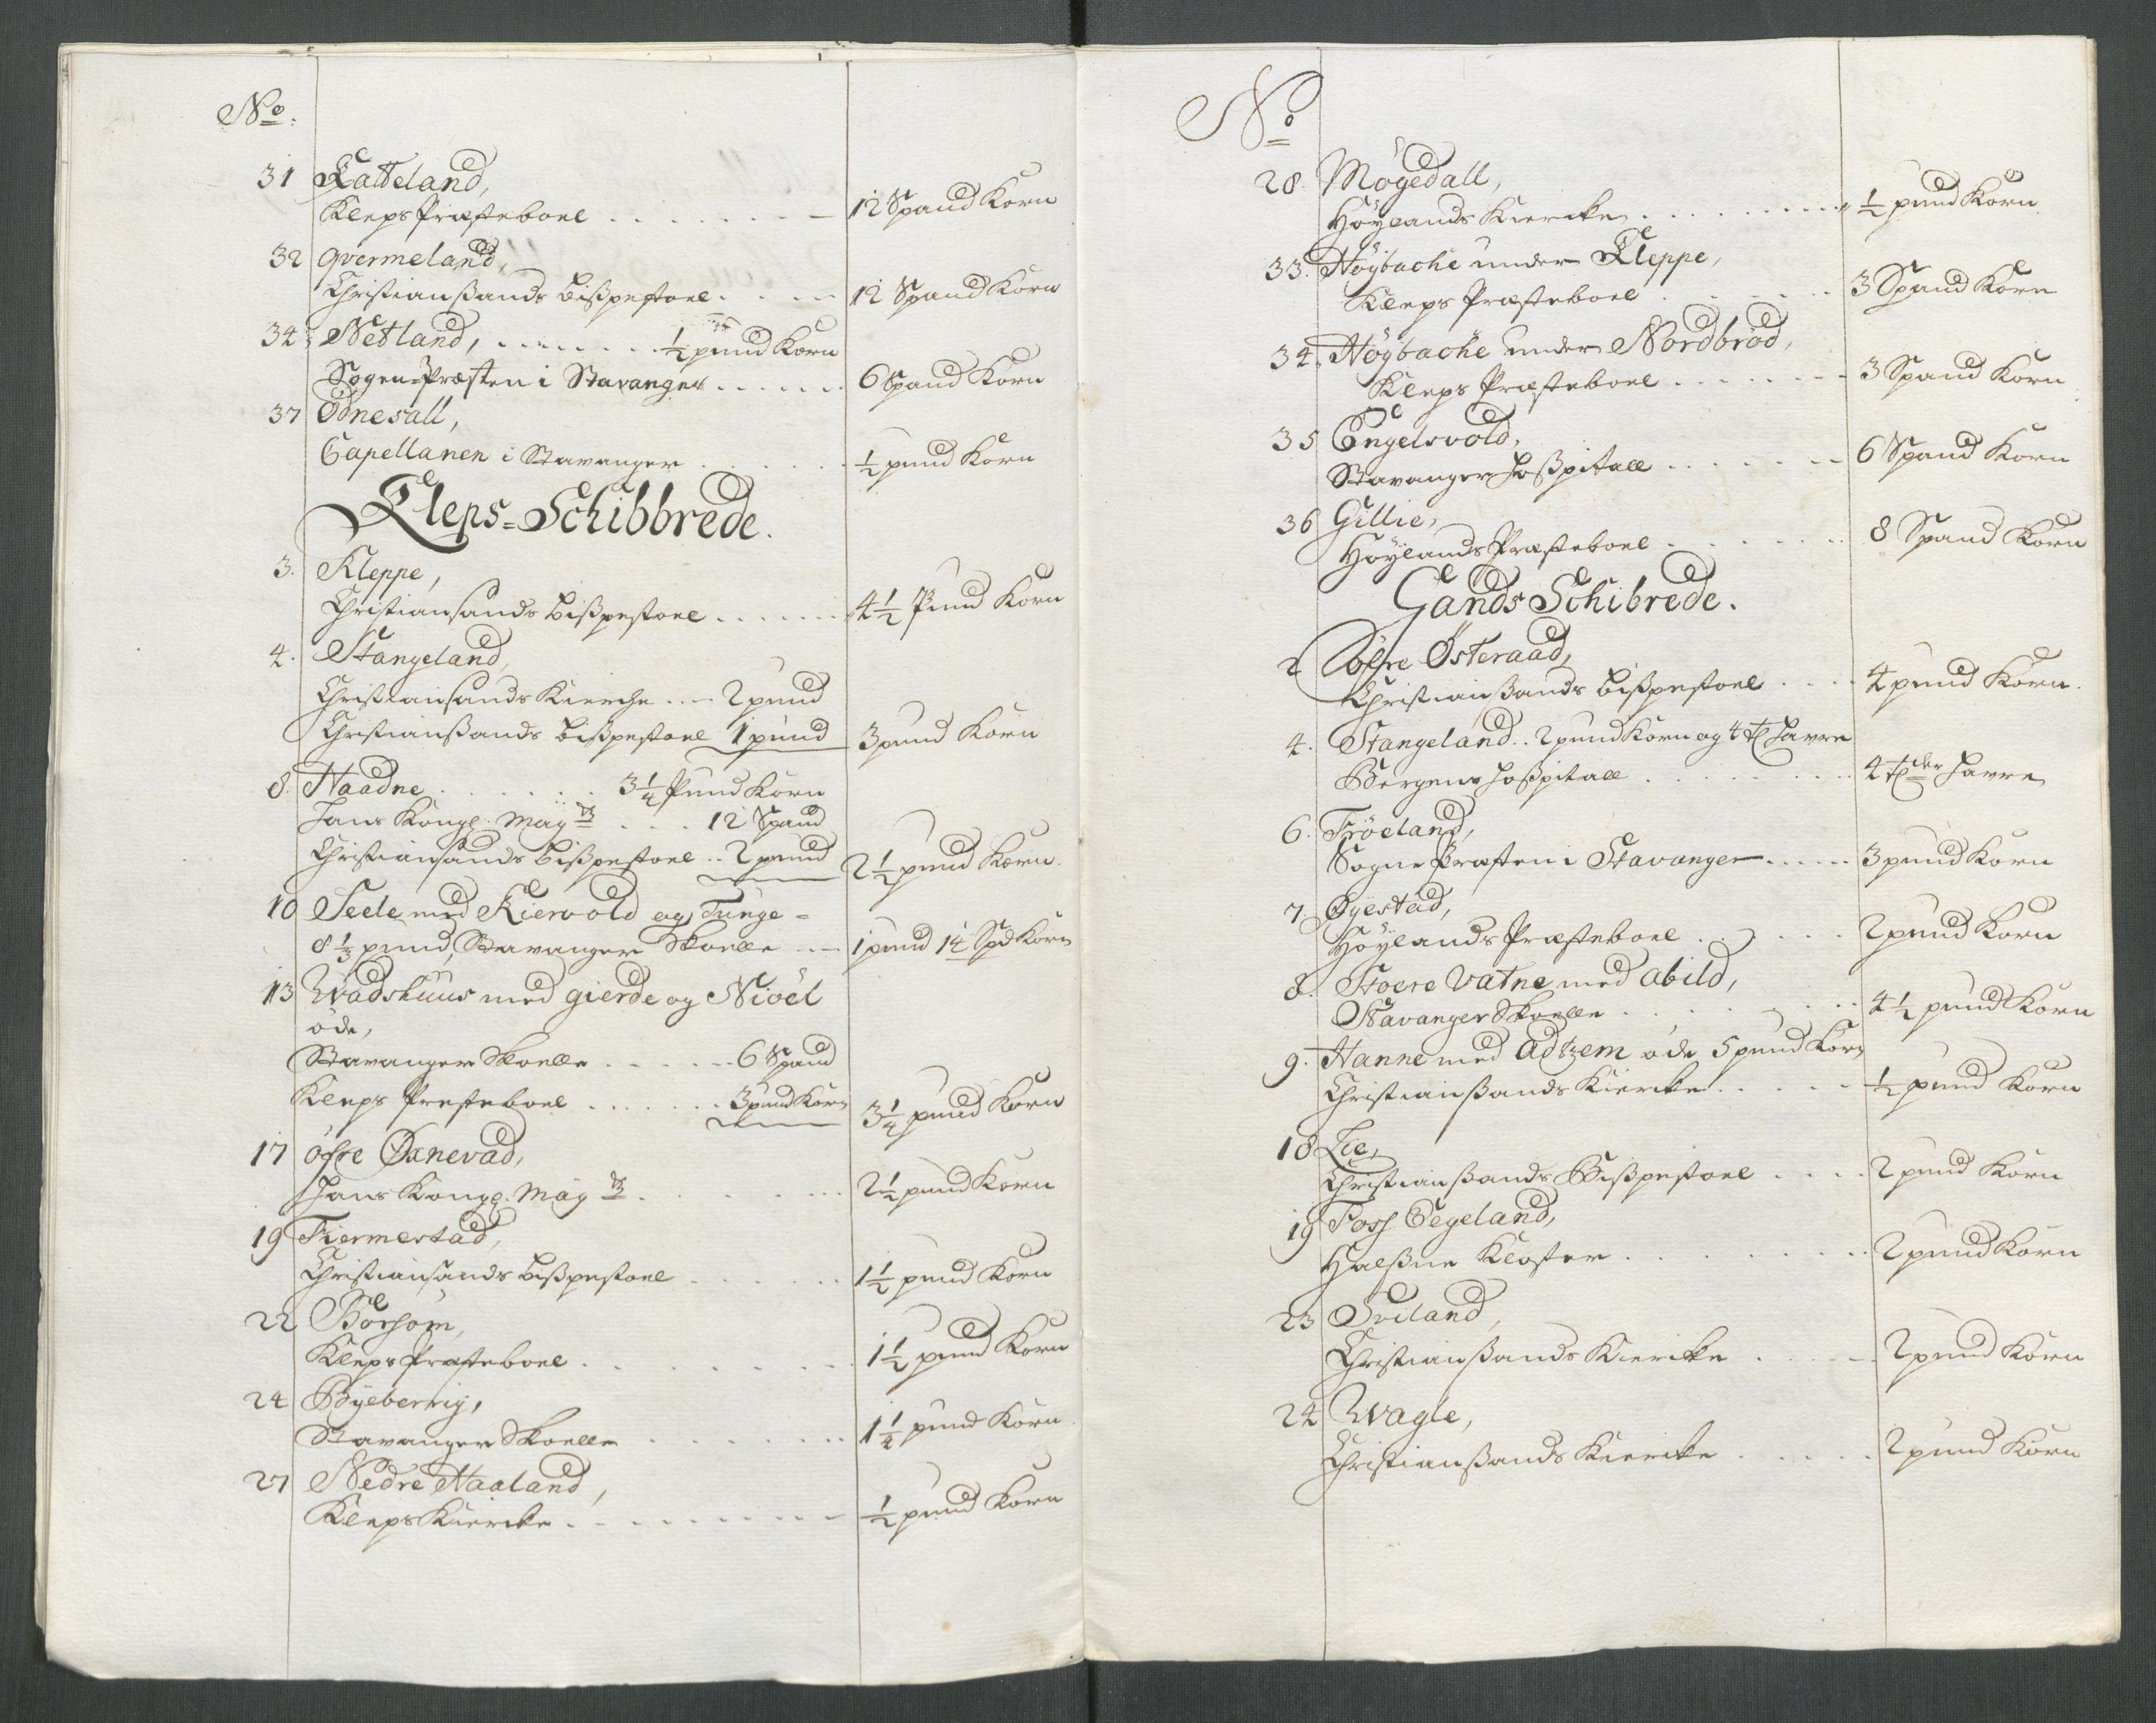 No:
31 Katteland,
Kleps Præsteboel . . . . . . . 12 Spand Korn
32 Qvermeland,
Christianßands Bißpestoel. . . . 12 Spand Korn
34 Netland, . . . . . . . ½ pund Korn
Sogne-Præsten i Stavanger . . . . . . 6 Spand Korn
37 Ödnesall,
Capellanen i Stavanger . . . . . . ½ pund Korn
Kleps-Schibbrede.
3. Kleppe,
Christiansands Bißpestoel . . . . . . 4½ Pund Korn
4. Stangeland,
Christiansands Kierche . . . 2 pund
Christianßands Bißpestoel 1 pund 3 pund Korn
8. Haadne . . . . . . 3¼ Pund Korn
Hans Kongl. May tz . . . 12 Spand
Christiansands Bißpestoel . . 2 pund 2½ pund Korn.
10 Seele med Kiervold og Tunge-
8⅓ pund, Stavanger Skoelle . . . 1 pund 14 Spd Korn
13 Wadshuus med gierde og Nioel
öde,
Stavanger Skoelle . . . . . 6 Spand
Kleps Presteboel . . . . . . 3 pund Korn 3¼ pund Korn
17 öfre Øxnevad,
Hans Kongl. May tz . . . . . . . 2½ pund Korn
19 Tiermestad,
Christiansands Bißpestoel . . . . . . 1½ pund Korn
22 Borsom,
Kleps Præsteboel . . . . . . . . 1½ pund Korn
24 Byeberrig,
Stavanger Skoelle . . . . . . . 1¼ pund Korn
27 Nedre Haaland,
Kleps Kiercke . . . . . . . . . ½ pund Korn
No
28. Mögedall,
Höylands Kiercke . . . . . . . . . ½ pund Korn
33. Höybache under Kleppe,
Kleps Præsteboel . . . . . . 3 Spand Korn
34. Höybache under Nordbröd,
Kleps Præsteboel . . . . . . . 3 Spand Korn
35 Engelsvold,
Stavanger Hoßpitall . . . . . . . 6 Spand Korn
36 Gillie,
Höylands Præsteboel . . . . . . . 8 Spand Korn
Gands Schibrede.
2 Söfre Østeraad,
Christianßands Bißpestoel . . . . 4 pund Korn.
4. Stangeland . . 2 pund Korn og 4 td Havre
Bergens Hoßpitall . . . . . . . . 4 tdr Havre
6. Fröeland,
Sogne Præsten i Stavanger . . . . . 3 pund Korn
7. Øyestad,
Höylands Præsteboel . . . . . . 2 pund Korn
8. Stoere Vatne med Abild,
Stavanger Skoelle . . . . . . . . 4½ pund Korn
9. Hanne med Adzem öde 5 pund Korn
Christianßands Kiercke . . . . . ½ pund Korn
18 Lie,
Christianßands Bißpestoel . . . . 2 pund Korn
19 Foss Eegeland,
Halßne Kloster . . . . . . . . 2 pund Korn
23 Sviland,
Christianßands Kiercke . . . . . 2 pund Korn
24 Wagle,
Christianßands Kiercke . . . . . 2 pund Korn